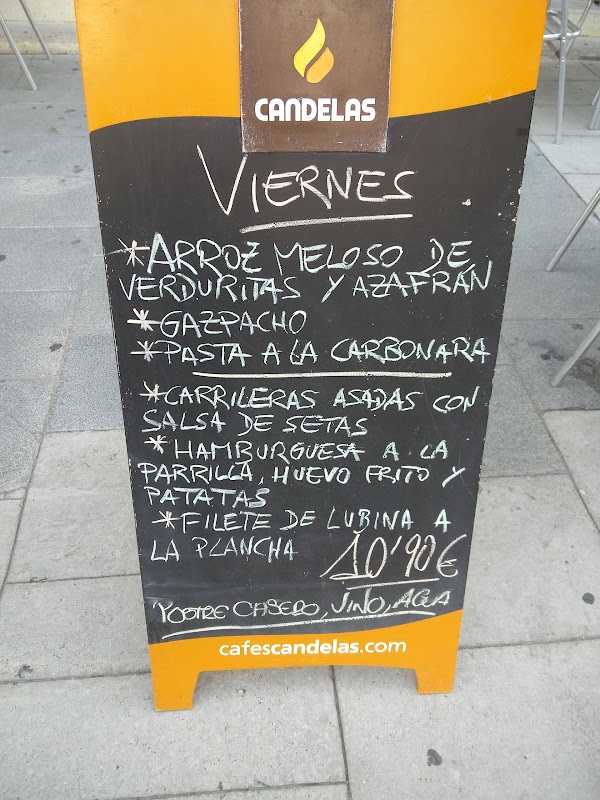 CANDELAS
VIERNES
*ARROZ MELOSO DE
VERDURITAS Y AZAFRÁN
*GAZPACHO
*PASTA A LA CARBONARA
*CARRILERAS ASADAS CON
SALSA DE SETAS
*HAMBURGUESA A LA
PARRILLA, HUEVO FRITO Y
PATATAS
*FILETE DE LUBINA A
LA PLANCHA
10'90€
POSTRE CASERO, VINO, AGUA
cafescandelas.com